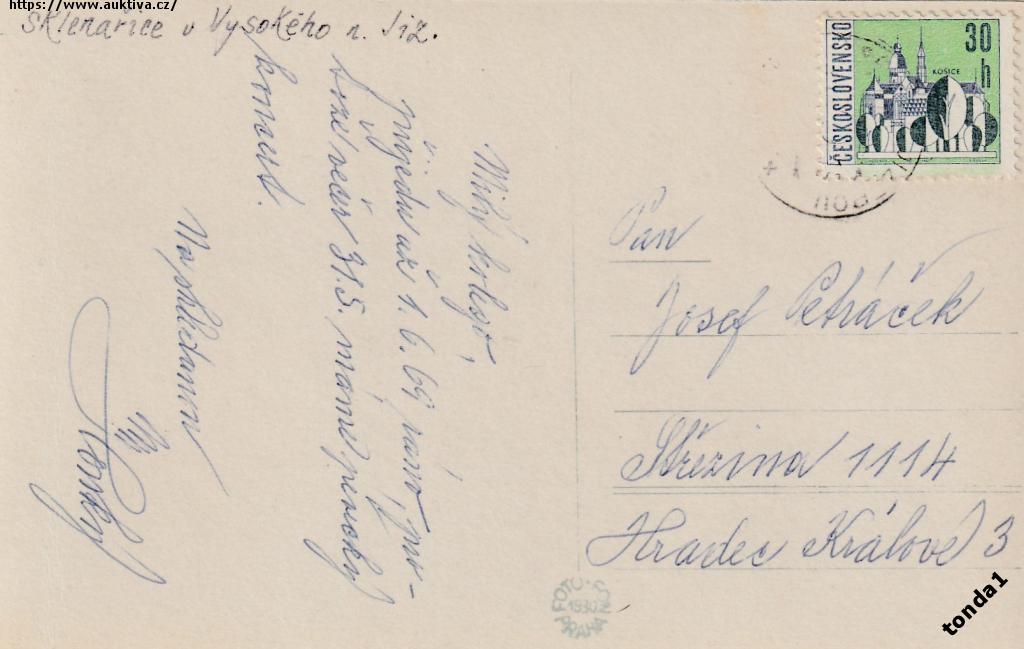 https://www.auktiva.cz/
Sklenařice u Vysokého n. Jiz.
Milý
přijedu až 1. 6. 69 ráno,
večer 31.5. máme
koncert.
Na shledanou
ČESKOSLOVENSKO
30
h
KOŠICE
Pan
Josef Petráček
Střezina 1114
Hradec Králové 3
FOTO
1930
PRAHA
tonda1